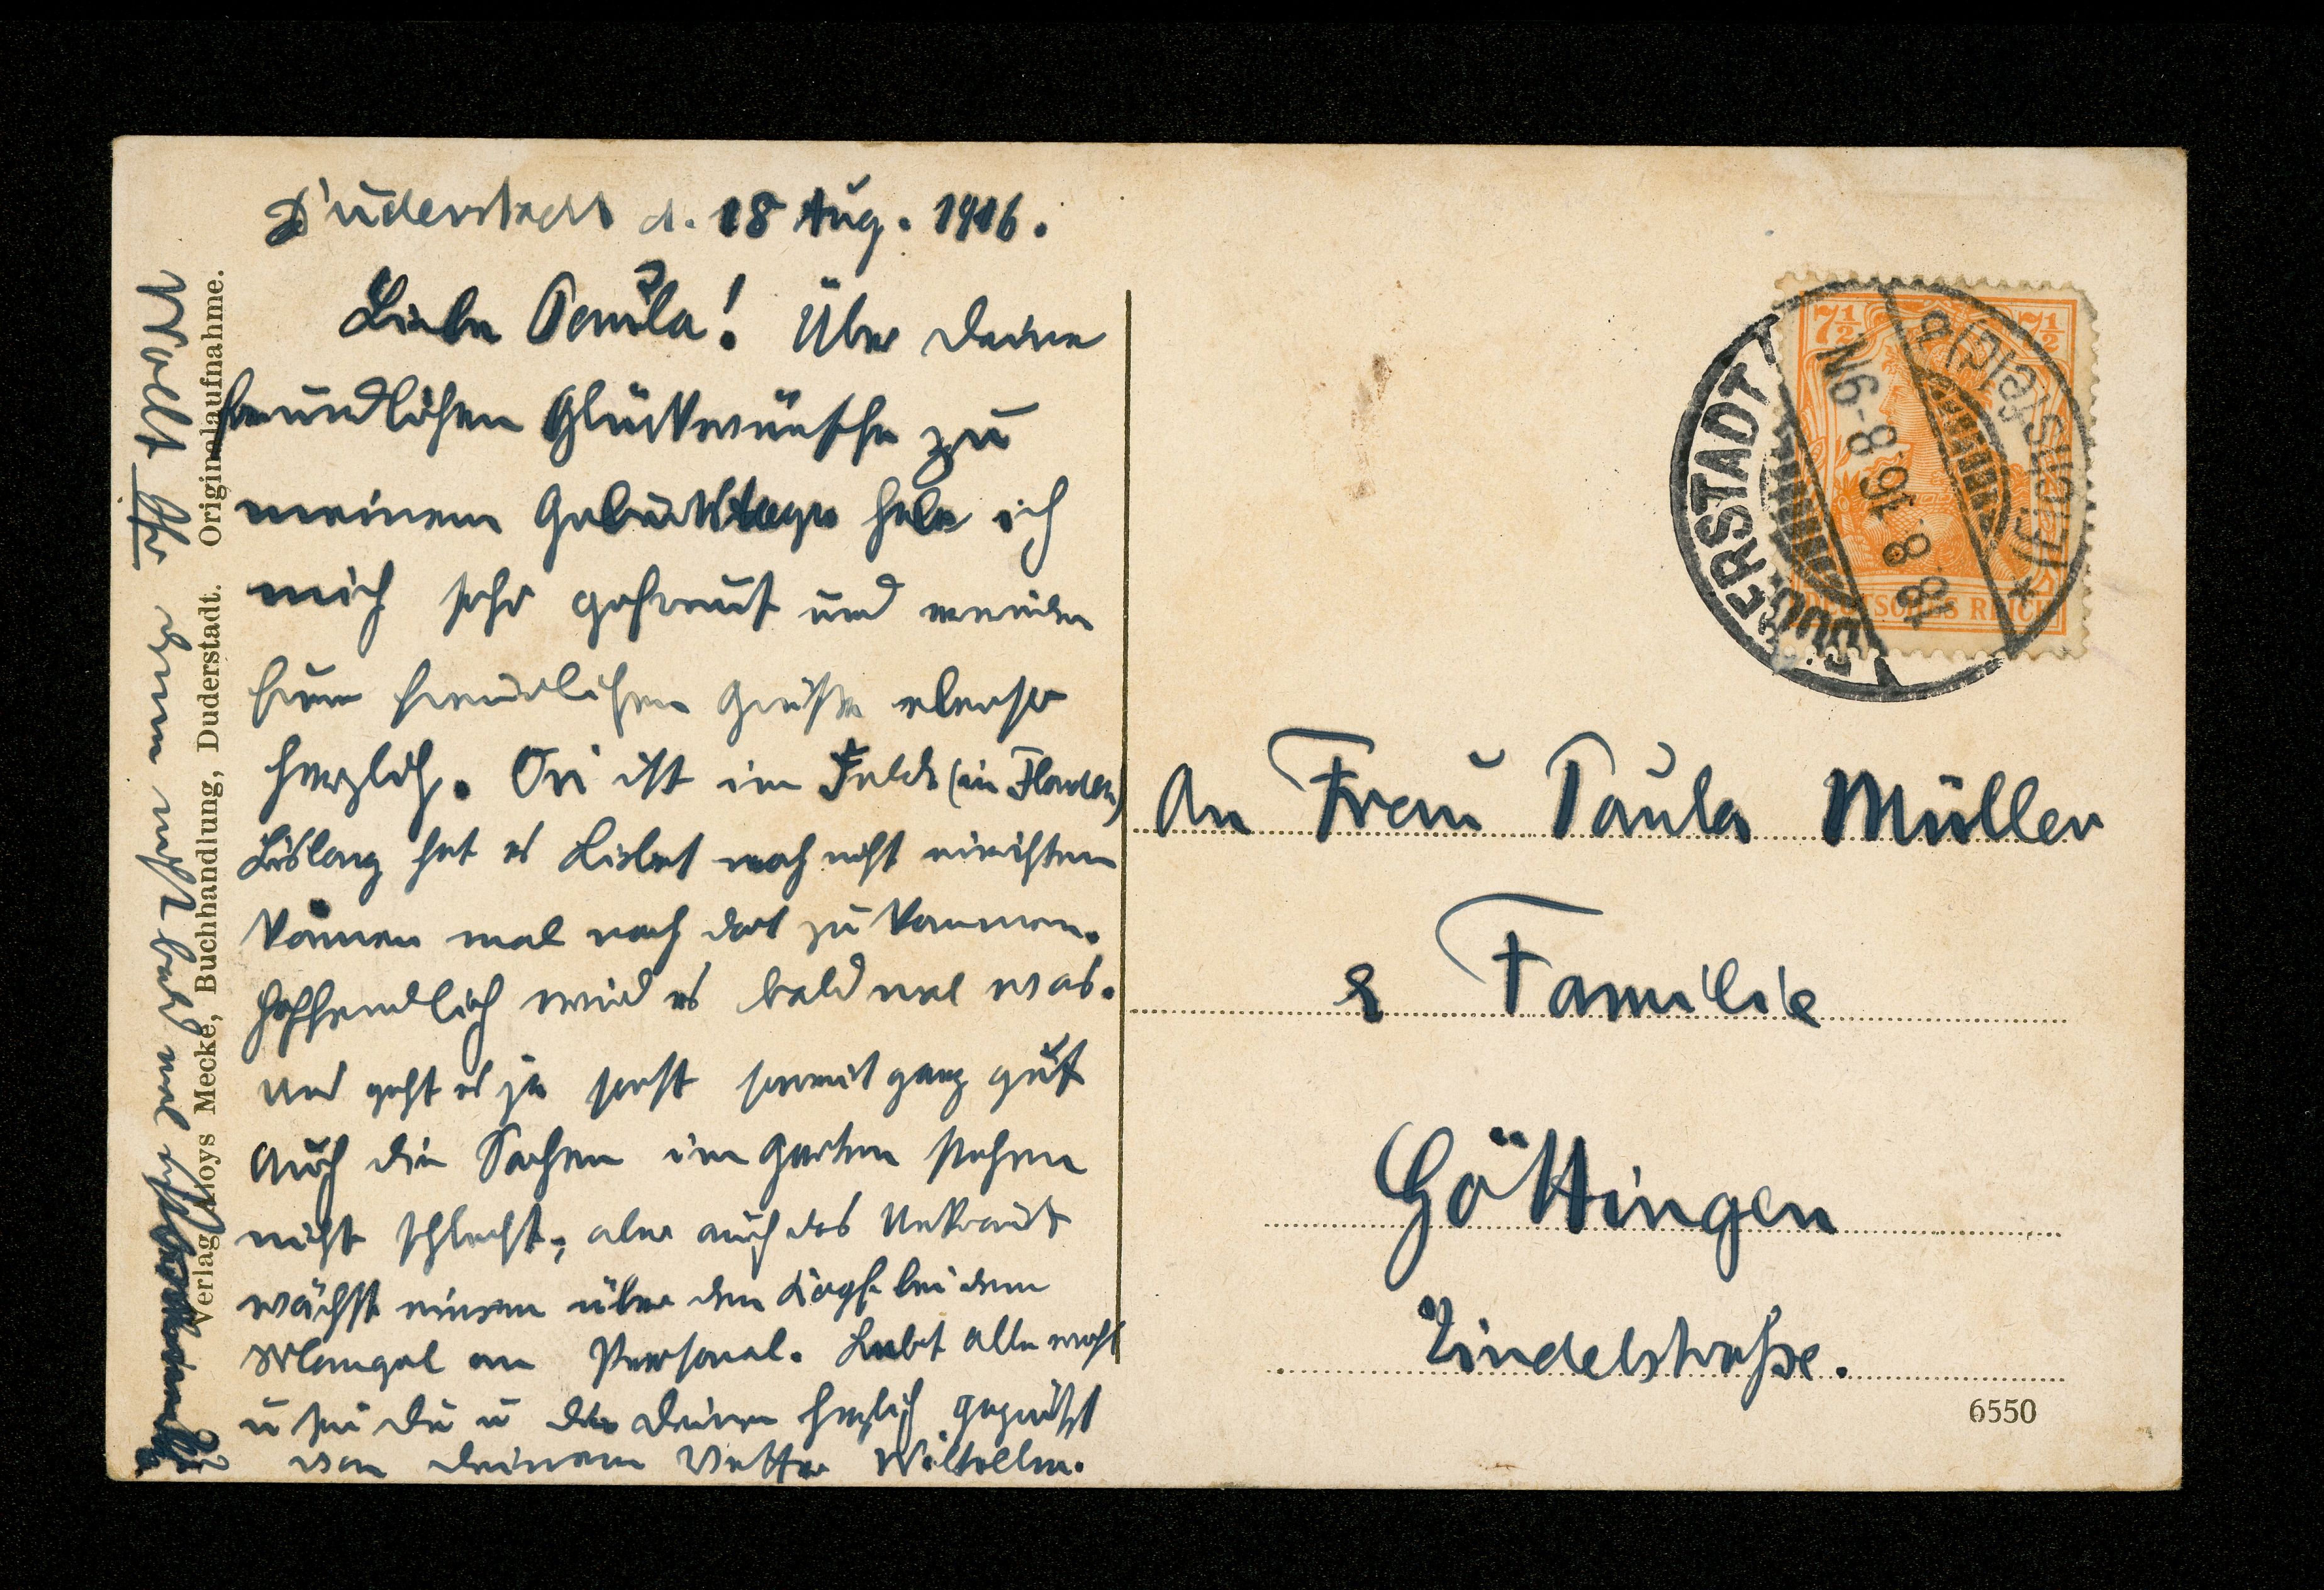 Duderstadt d. 18 Aug. 1916.
Liebe Paula! Über Deine
freundlichen Glückwünsche zu
meinem Geburtstage habe ich
mich sehr gefreut und
freundlichen Grüße ebenso
herzlich. Ori ist im Felde (in Flandern)
Bislang hat es Lisbet noch nicht einrichten
können mal nach dort zu kommen.
Hoffendlich wird es bald mal was.
Uns geht es ja sonst soweit ganz gut
Auch die Sachen im Garten stehen
nicht schlecht, aber auch das Unkraut
wächst einem über den Kopf bei dem
Mangel an Personal. Lebt alle wohl
u sei Du u die Deinen herzlich gegrüßt
von Deinem Vetter Wilhelm.
Wollt Ihr denn nicht bald mal
Verlag Aloys Mecke, Buchhandlung, Duderstadt. Originalaufnahme.
DEUTSCHES REICH
7½ 7½
DUDERSTADT
18.8.16.8-9N
(Eichsfeld)
An Frau Paula Müller
& Familie
Göttingen
Lindelstraße.
6550